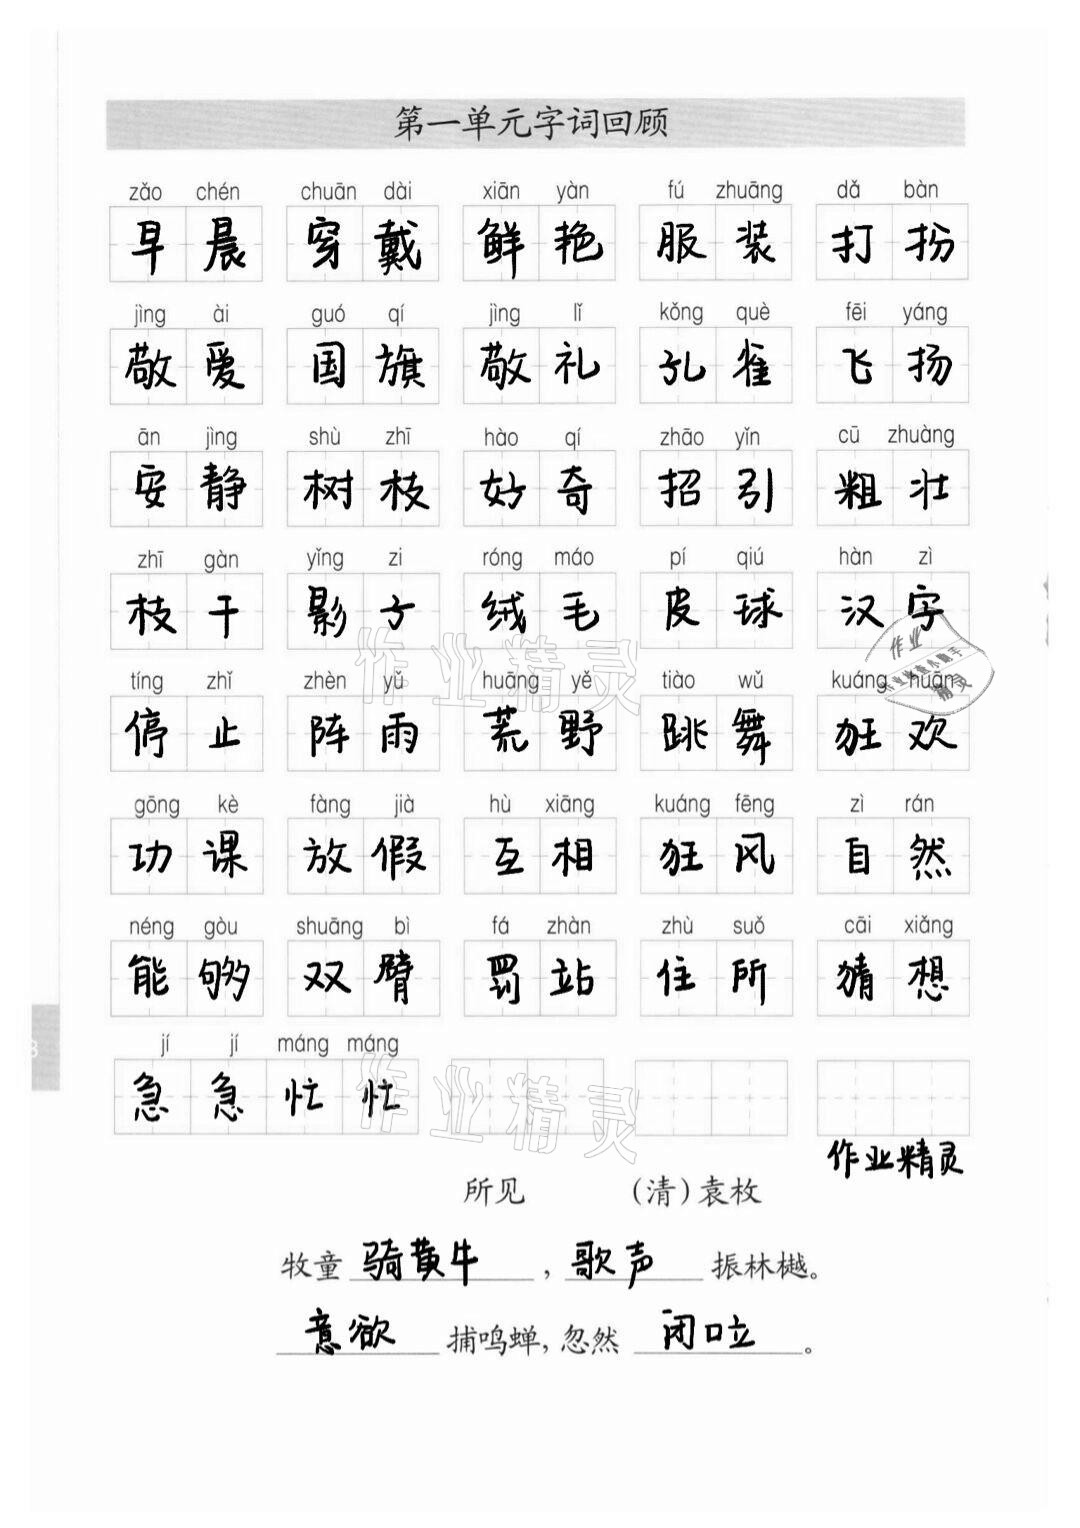 第一单元字词回顾
zǎo chén chuān dài xiān yàn fú zhuāng dǎ bàn
早晨 穿戴 鲜艳 服装 打扮
jìng ài guó qí jìng lǐ kǒng què fēi yáng
敬爱 国旗 敬礼 孔雀 飞扬
ān jìng shù zhī hào qí zhāo yǐn cū zhuàng
安静 树枝 好奇 招引 粗壮
zhī gàn yǐng zi róng máo pí qiú hàn zì
枝干 影子 绒毛 皮球 汉字
tíng zhǐ zhèn yǔ huāng yě tiào wǔ kuáng huān
停止 阵雨 荒野 跳舞 狂欢
gōng kè fàng jià hù xiāng kuáng fēng zì rán
功课 放假 互相 狂风 自然
néng gòu shuāng bì fá zhàn zhù suǒ cāi xiǎng
能够 双臂 罚站 住所 猜想
jí jí máng máng
急急忙忙
作业精灵
所见 (清)袁枚
牧童骑黄牛,歌声振林樾。
意欲捕鸣蝉,忽然闭口立。
作业精灵
作业精灵